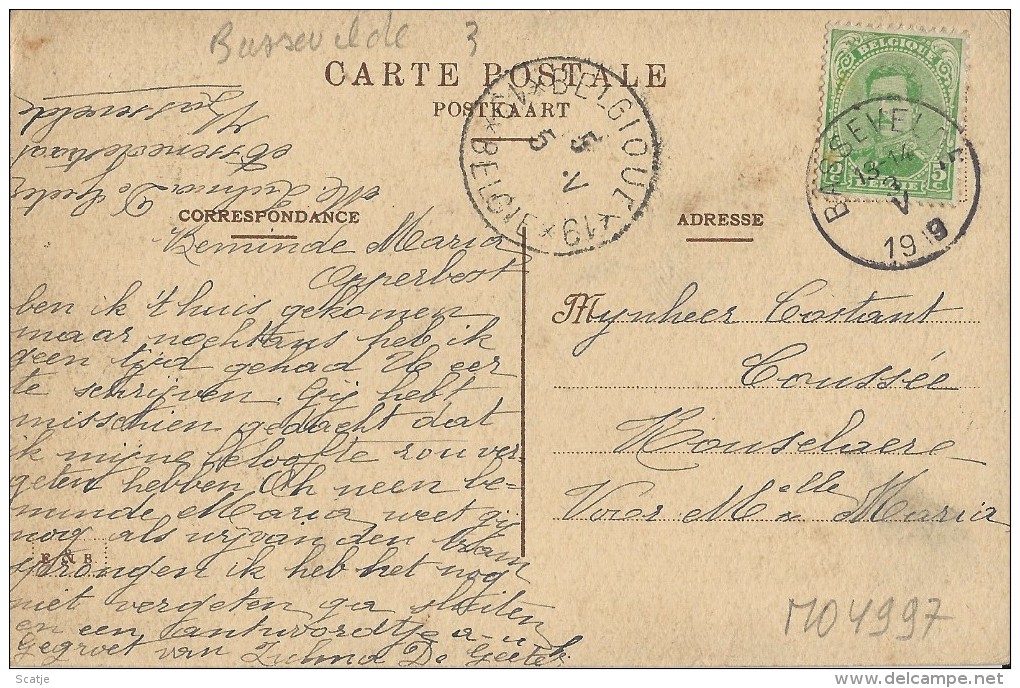 Bassevelde 3
CARTE POSTALE
POSTKAART
BELGIQUE
5c 5c
BELGIE
BASSEVEL
13-14
3
V
1919
BELGIQUE * 19 * BELGIE *
5 5
V
Mlle Zulma De Geeter
Assenedestraat
Bassevelde
CORRESPONDANCE
ADRESSE
Beminde Maria
Opperbest
ben ik 't huis gekomen
maar nochtans heb ik
geen tijd gehad U eer
te schrijven. Gij hebt
misschien gedacht dat
ik mijne belofte zou ver-
geten hebben Och neen be-
minde Maria weet gij
nog als wij van den tram
sprongen ik heb het nog
niet vergeten ga sluiten
en een antwoordtje a-u-b
Gegroet van Zulma De Geeter
E & B
Mynheer Costant
Coussée
Houselaere
Voor Melle Maria
MO4997
Scatje
delcampe.net